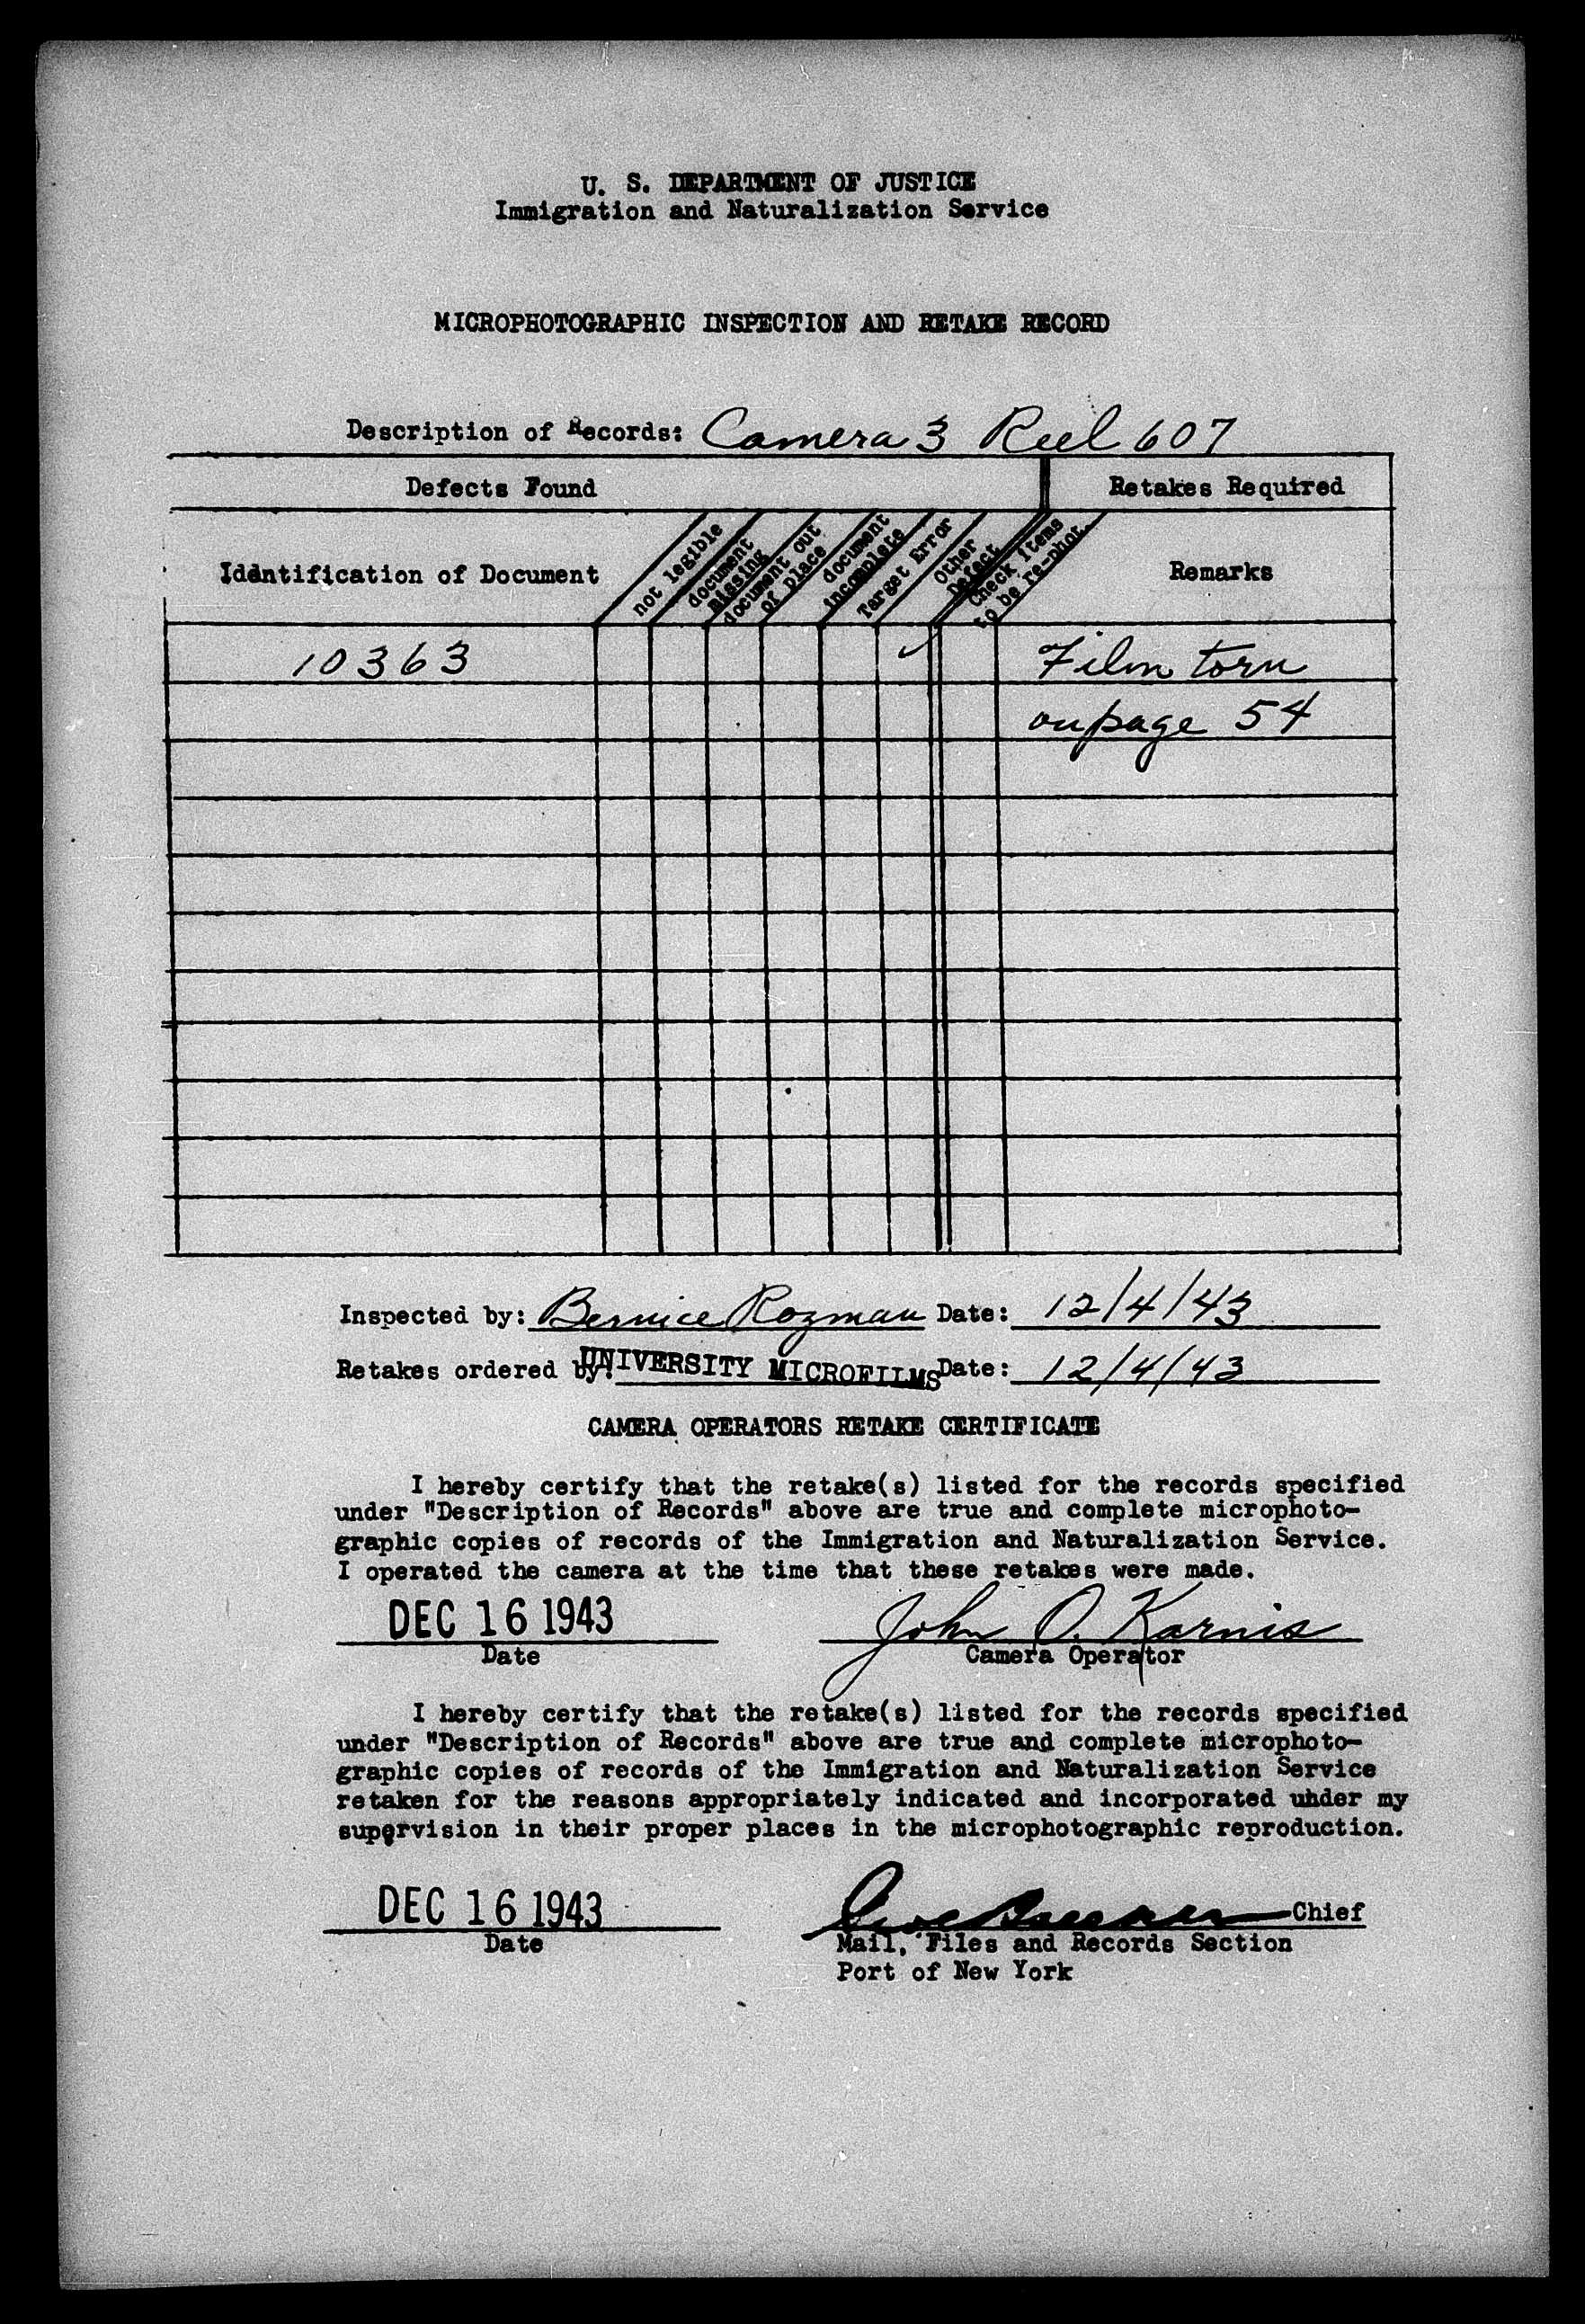 U. S. DEPARTMENT OF JUSTICE
Immigration and Naturalization Service
MICROPHOTOGRAPHIC INSPECTION AND RETAKE RECORD
Description of Records: Camera 3 Reel 607
Defects Found Retakes Required
Identification of Document
not legible
document
missing
document out
of place
document
incomplete
Target Error
Other
Defect
Check items
to be re-phot.
Remarks
10363 ✓ Film torn
on page 54
Inspected by: Bernice Rozman Date: 12/4/43
Retakes ordered by: UNIVERSITY MICROFILMS Date: 12/4/43
CAMERA OPERATORS RETAKE CERTIFICATE
I hereby certify that the retake(s) listed for the records specified
under "Description of Records" above are true and complete microphoto-
graphic copies of records of the Immigration and Naturalization Service.
I operated the camera at the time that these retakes were made.
DEC 16 1943 John O. Karnis
Date Camera Operator
I hereby certify that the retake(s) listed for the records specified
under "Description of Records" above are true and complete microphoto-
graphic copies of records of the Immigration and Naturalization Service
retaken for the reasons appropriately indicated and incorporated under my
supervision in their proper places in the microphotographic reproduction.
DEC 16 1943 Chief
Date Mail, Files and Records Section
Port of New York